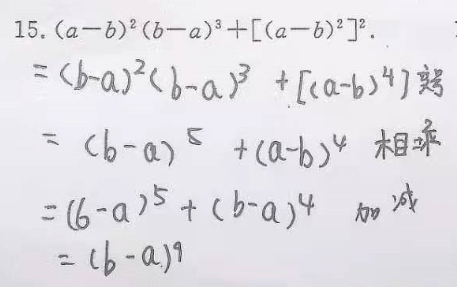 15. (a－b)²(b－a)³＋[(a－b)²]².
= (b-a)²(b-a)³ +[(a-b)⁴]
= (b-a)⁵ +(a-b)⁴ 相乘
=(b-a)⁵ + (b-a)⁴ 加减
= (b-a)⁹